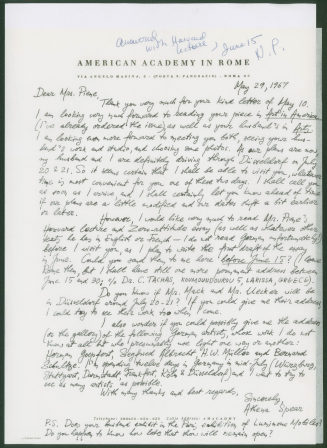 answered
with Harvard
lecture, June 15
N.P.
AMERICAN ACADEMY IN ROME
VIA ANGELO MASINA, 5 · (PORTA S. PANCRAZIO) · ROMA
May 29, 1967
Dear Mrs. Piene,
Thank you very much for your kind letter of May 10.
I am looking very much forward to reading your piece in Art in America
(I've already ordered the issue) as well as your husband's in Arts
I am looking even more forward to meeting you both, seeing your hus-
band's work and studio, and choosing some photos. As our plans are now
my husband and I are definitely driving through Düsseldorf on July
20 & 21. So it seems certain that I shall be able to visit you, whatever
time is most convenient for you on these two days. I shall call you
as soon as I arrive and I shall certainly let you know ahead of time
if our plans are a little modified and our dates shift a bit earlier
or later.
However, I would like very much to read Mr. Piene's
Harvard lecture and Zero-attitude essay (as well as whatever other
texts he has in English or French – I do not read German unfortunately)
before I visit you, as I plan to write the first draft of the essay
in June. Could you send them to me here before June 15? (I
them, but I shall have still one more permanent address between
June 15 and 30, % Dr. C. TRACHANI, KOUMOUNDOUROU 5, LARISSA, GREECE).
Do you know if Mrs. Mack and Mr. Uecker will be
in Düsseldorf around July 20-21? If you could give me their address
I could try to see their work too when I come.
I also wonder if you could possibly give me the address
(or the gallery) of the following German artists, whose work I do not
know at all but who presumably use light one way or another:
Hermann Goepfert, Siegfried Albrecht, H.W. Müller and Bernard
Schultze. I'm spending twelve days in Germany in mid-July (Würzburg,
Stuttgart, Darmstadt, Frankfurt, Köln & Düsseldorf) and I want to try to
see as many artists as possible.
With many thanks and best regards,
Sincerely,
Athena Spear
P.S. Does your husband exhibit in the Paris exhibition of Luminous Mobiles?
Do you happen to know how late that show will remain open?